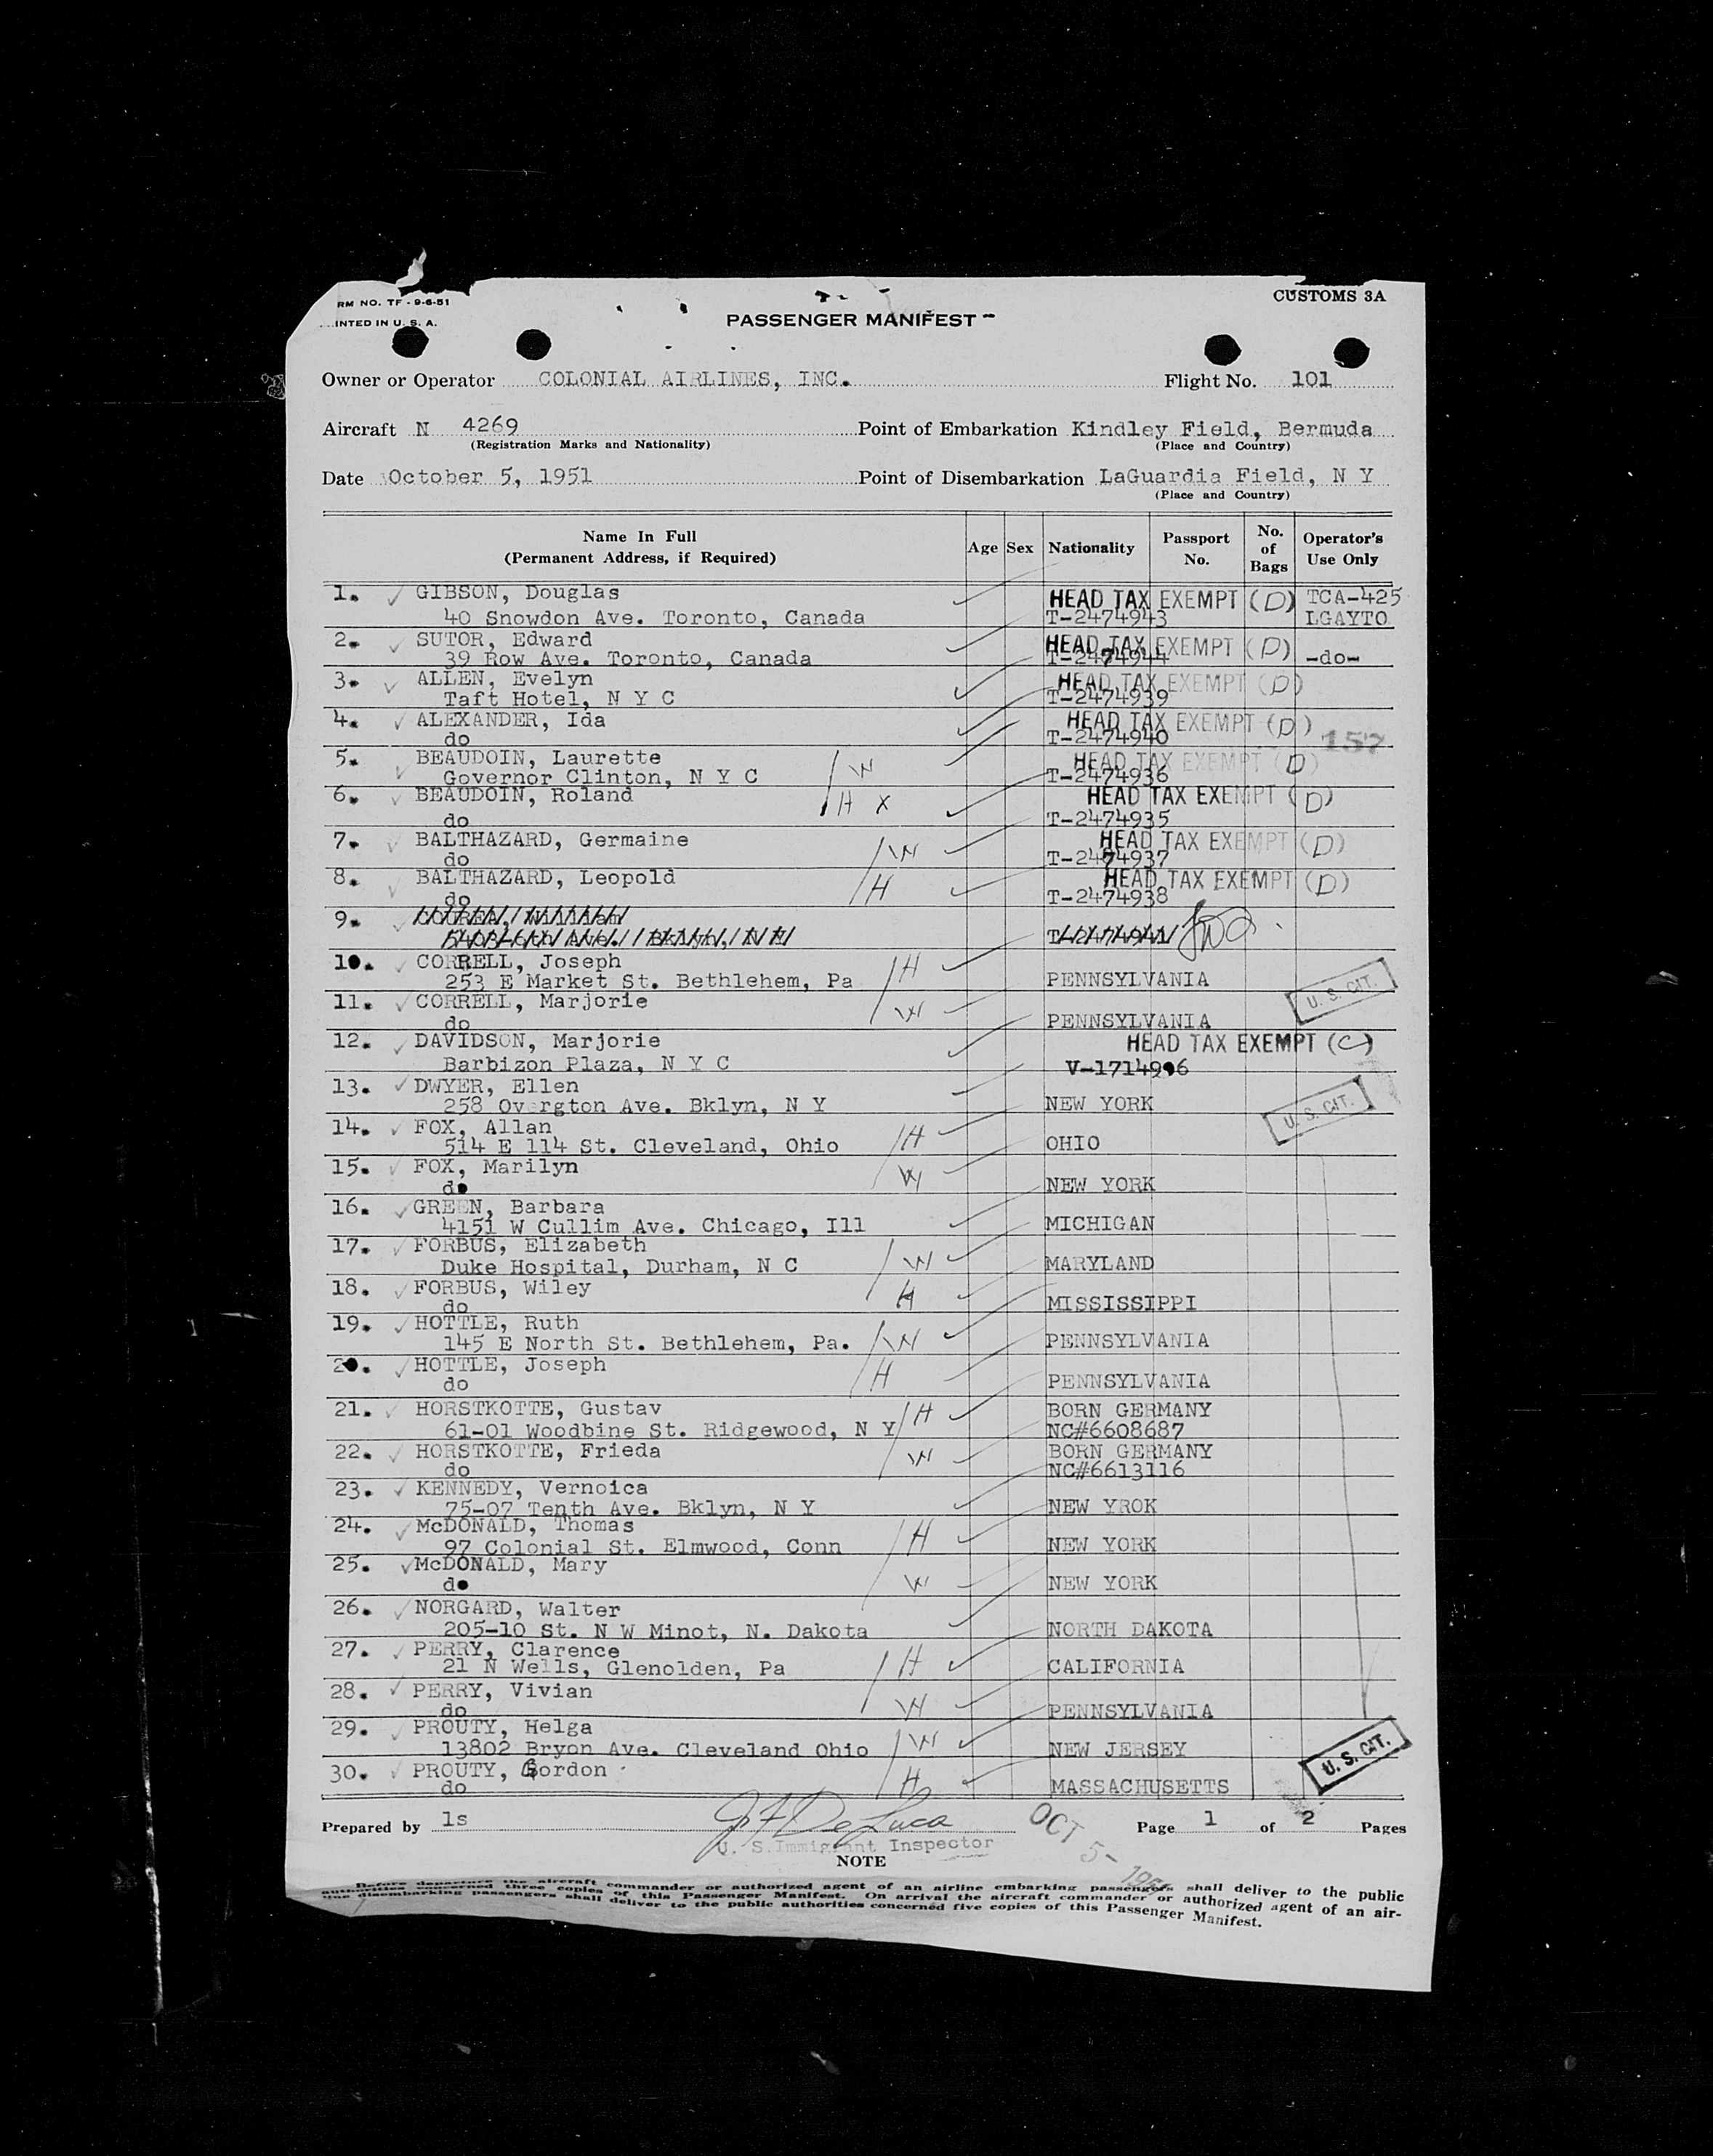 RM NO. TF - 9-6-51
CUSTOMS 3A
INTED IN U. S. A.
PASSENGER MANIFEST
Owner or Operator COLONIAL AIRLINES, INC. Flight No. 101
Aircraft N 4269 Point of Embarkation Kindley Field, Bermuda
(Registration Marks and Nationality) (Place and Country)
Date October 5, 1951 Point of Disembarkation LaGuardia Field, N Y
(Place and Country)
Name In Full (Permanent Address, if Required) Age Sex Nationality Passport No. No. of Bags Operator's Use Only
1. GIBSON, Douglas HEAD TAX EXEMPT (D) TCA-425
40 Snowdon Ave. Toronto, Canada T-2474943 LGAYTO
2. SUTOR, Edward HEAD TAX EXEMPT (D)
39 Row Ave. Toronto, Canada T-2474944 -do-
3. ALLEN, Evelyn HEAD TAX EXEMPT (D)
Taft Hotel, N Y C T-2474939
4. ALEXANDER, Ida HEAD TAX EXEMPT (D)
do T-2474940 157
5. BEAUDOIN, Laurette W HEAD TAX EXEMPT (D)
Governor Clinton, N Y C T-2474936
6. BEAUDOIN, Roland H X HEAD TAX EXEMPT (D)
do T-2474935
7. BALTHAZARD, Germaine W HEAD TAX EXEMPT (D)
do T-2474937
8. BALTHAZARD, Leopold H HEAD TAX EXEMPT (D)
do T-2474938
9.
10. CORRELL, Joseph H
253 E Market St. Bethlehem, Pa PENNSYLVANIA
11. CORRELL, Marjorie W U. S. CIT.
do PENNSYLVANIA
12. DAVIDSON, Marjorie HEAD TAX EXEMPT (C)
Barbizon Plaza, N Y C V-1714996
13. DWYER, Ellen
258 Ov rgton Ave. Bklyn, N Y NEW YORK U. S. CIT.
14. FOX, Allan H
514 E 114 St. Cleveland, Ohio OHIO
15. FOX, Marilyn W
do NEW YORK
16. GREEN, Barbara
4151 W Cullim Ave. Chicago, Ill MICHIGAN
17. FORBUS, Elizabeth W
Duke Hospital, Durham, N C MARYLAND
18. FORBUS, Wiley H
do MISSISSIPPI
19. HOTTLE, Ruth W
145 E North St. Bethlehem, Pa. PENNSYLVANIA
20. HOTTLE, Joseph H
do PENNSYLVANIA
21. HORSTKOTTE, Gustav H BORN GERMANY
61-01 Woodbine St. Ridgewood, N Y NC#6608687
22. HORSTKOTTE, Frieda W BORN GERMANY
do NC#6613116
23. KENNEDY, Vernoica
75-07 Tenth Ave. Bklyn, N Y NEW YROK
24. McDONALD, Thomas H
97 Colonial St. Elmwood, Conn NEW YORK
25. McDONALD, Mary W
do NEW YORK
26. NORGARD, Walter
205-10 St. N W Minot, N. Dakota NORTH DAKOTA
27. PERRY, Clarence H
21 N Wells, Glenolden, Pa CALIFORNIA
28. PERRY, Vivian W
do PENNSYLVANIA
29. PROUTY, Helga W
13802 Bryon Ave. Cleveland Ohio NEW JERSEY U. S. CIT.
30. PROUTY, Gordon H
do MASSACHUSETTS
Prepared by ls J F De Luca OCT 5- 1951 Page 1 of 2 Pages
U. S. Immigrant Inspector
NOTE
Before departure the aircraft commander or authorized agent of an airline embarking passengers shall deliver to the public
authorities concerned three copies of this Passenger Manifest. On arrival the aircraft commander or authorized agent of an air-
line disembarking passengers shall deliver to the public authorities concerned five copies of this Passenger Manifest.